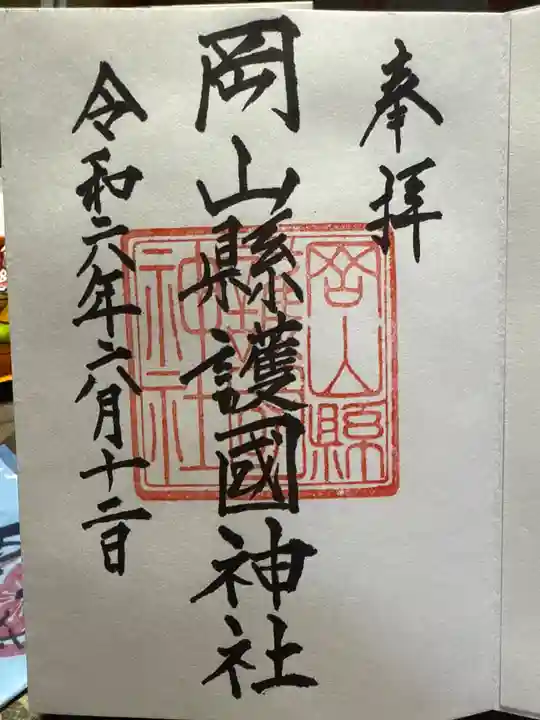 奉拝
岡山縣護國神社
岡山縣護國神社
令和六年六月十二日